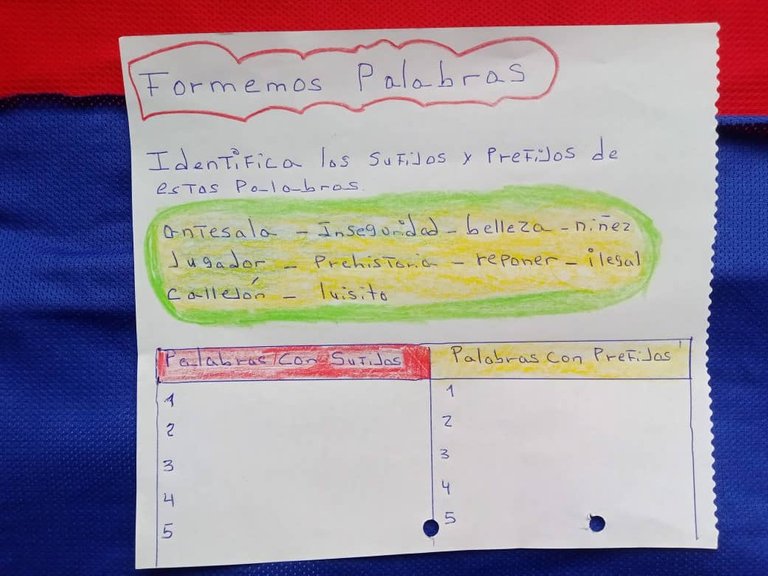 Formemos Palabras
Identifica los sufijos y prefijos de
estas Palabras.
antesala - Inseguridad - belleza - niñez
Jugador - Prehistoria - reponer - ilegal
Callejón - luisito
Palabras Con Sufijos
Palabras Con Prefijos
1
2
3
4
5
1
2
3
4
5